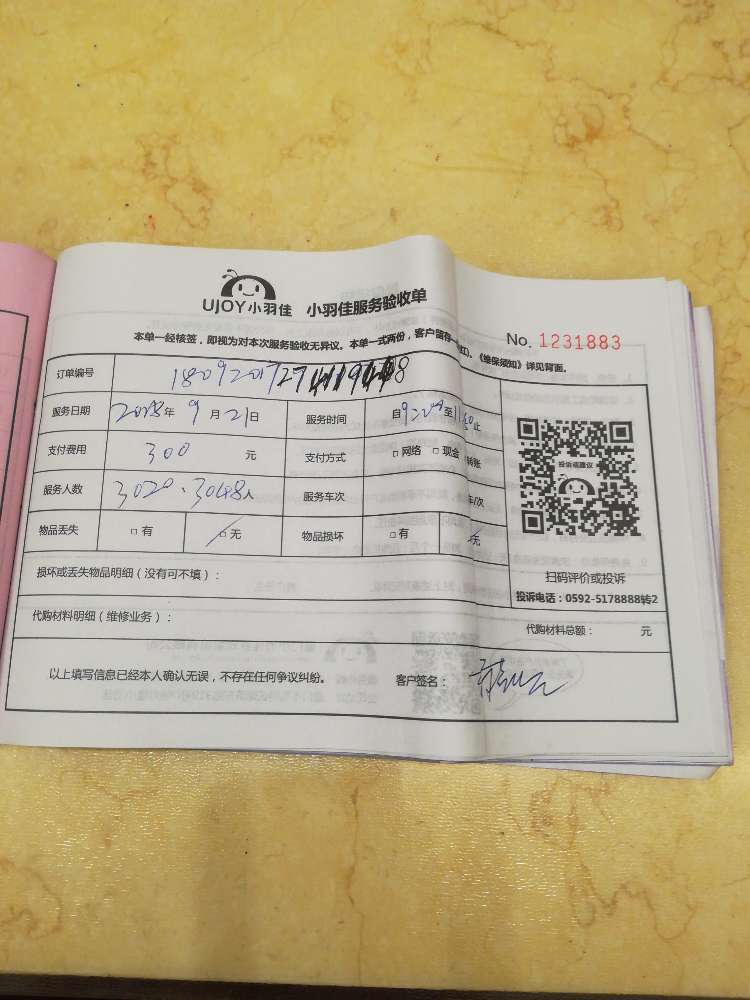 UJOY小羽佳 小羽佳服务验收单
No. 1231883
本单一经核签，即视为对本次服务验收无异议。本单一式两份，客户留存一 红)。《维保须知》详见背面。
订单编号 1809201727
服务日期 2018年 9月21日 服务时间 自9: 至11:50止
支付费用 300 元 支付方式 □网络 □现金 转账
服务人数 3020、3048人 服务车次 车/次
物品丢失 □有 □无 物品损坏 □有 无
投诉或建议
扫码评价或投诉
投诉电话：0592-5178888转2
损坏或丢失物品明细（没有可不填）：
代购材料明细（维修业务）： 代购材料总额： 元
以上填写信息已经本人确认无误，不存在任何争议纠纷。 客户签名：